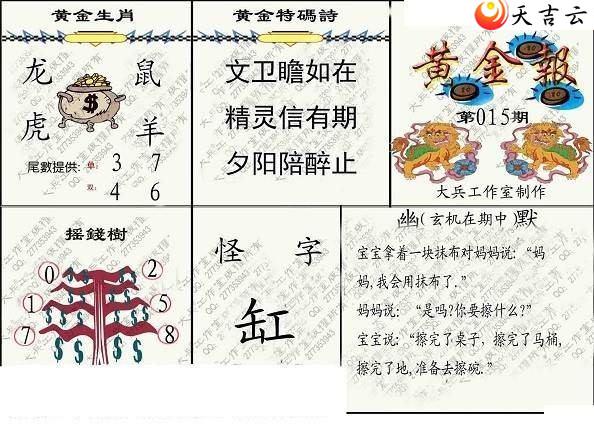 天吉云
黄金生肖
龙 鼠
虎 羊
尾數提供: 单: 3 7
双: 4 6
黄金特碼詩
文卫瞻如在
精灵信有期
夕阳陪醉止
黄金報
第015期
大兵工作室制作
摇錢樹
0 2
1 5
5 7
8
怪 字
缸
幽(玄机在期中)默
宝宝拿着一块抹布对妈妈说:“妈
妈,我会用抹布了.”
妈妈说: “是吗?你要擦什么?”
宝宝说:“擦完了桌子, 擦完了马桶,
擦完了地,准备去擦碗.”